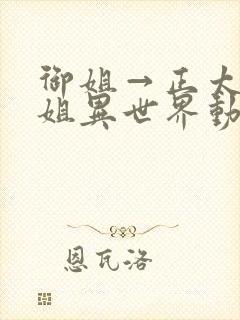 御姐→正太
姐異世界動
恩瓦洛